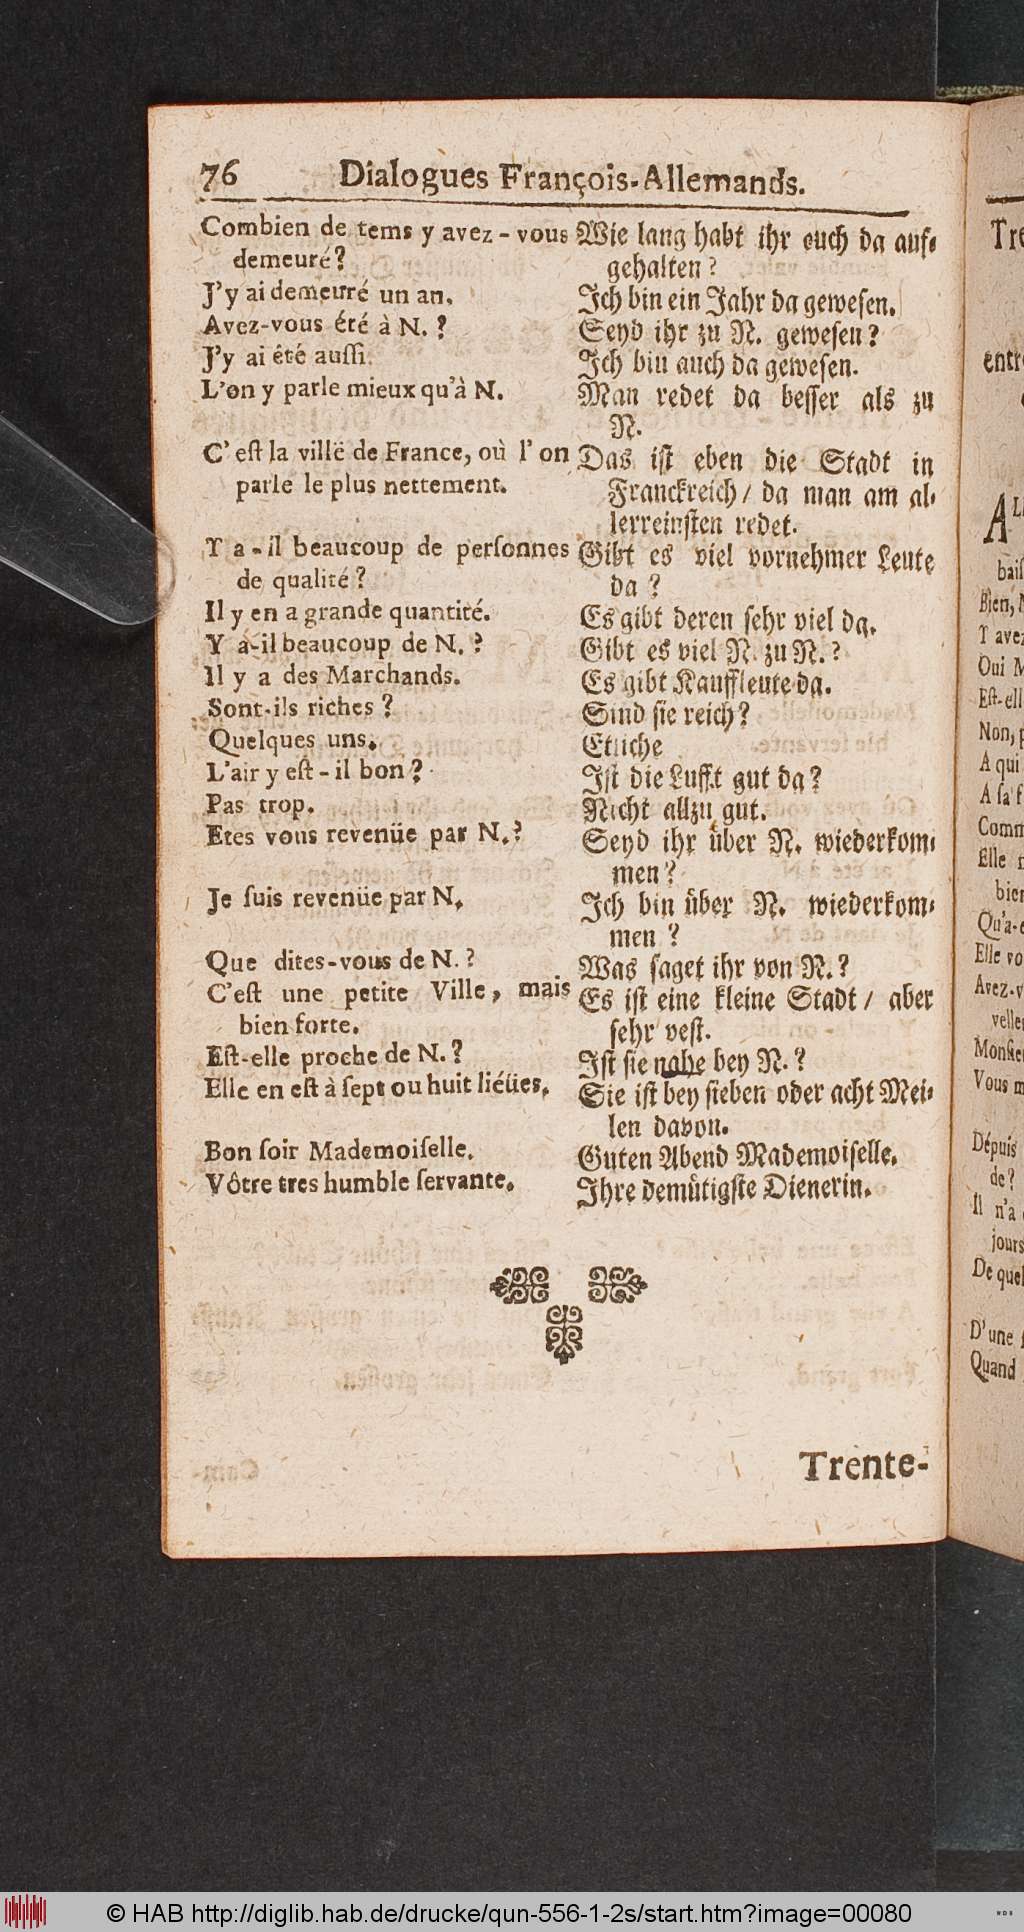 76 Dialogues François-Allemands.
Combien de tems y avez-vous
demeuré?
J'y ai demeuré un an.
Avez-vous été à N.?
J'y ai êté auſſi.
L'on y parle mieux qu'à N.
C'eſt la ville de France, où l'on
parle le plus nettement.
Y a-il beaucoup de perſonnes
de qualité?
Il y en a grande quantité.
Y a-il beaucoup de N.?
Il y a des Marchands.
Sont-ils riches?
Quelques uns.
L'air y eſt-il bon?
Pas trop.
Etes vous revenüe par N.?
Je ſuis revenüe par N.
Que dites-vous de N.?
C'eſt une petite Ville, mais
bien forte.
Eſt-elle proche de N.?
Elle en eſt à ſept ou huit liéües.
Bon ſoir Mademoiſelle.
Vôtre tres humble ſervante.
Wie lang habt ihr euch da auf⸗
gehalten?
Ich bin ein Jahr da geweſen.
Seyd ihr zu N. geweſen?
Ich bin auch da geweſen.
Man redet da beſſer als zu
N.
Das iſt eben die Stadt in
Franckreich / da man am al⸗
lerreinſten redet.
Gibt es viel vornehmer Leute
da?
Es gibt deren ſehr viel da.
Gibt es viel N. zu N.?
Es gibt Kauffleute da.
Sind ſie reich?
Etliche
Iſt die Lufft gut da?
Nicht allzu gut.
Seyd ihr über N. wiederkom⸗
men?
Ich bin über N. wiederkom⸗
men?
Was ſaget ihr von N.?
Es iſt eine kleine Stadt / aber
ſehr veſt.
Iſt ſie nahe bey N.?
Sie iſt bey ſieben oder acht Mei⸗
len davon.
Guten Abend Mademoiſelle.
Ihre demütigſte Dienerin.
Trente-
Tre
entr
AL
baiſ
Bien,
Y avez
Oui M
Eſt-ell
Non, p
A qui
A ſa f
Comm
Elle
bien
Qu'a-
Elle vo
Avez-v
velle
Monſie
Vous m
Dépuis
de?
Il n'a
jours
De quel
D'une
Quand
© HAB http://diglib.hab.de/drucke/qun-556-1-2s/start.htm?image=00080